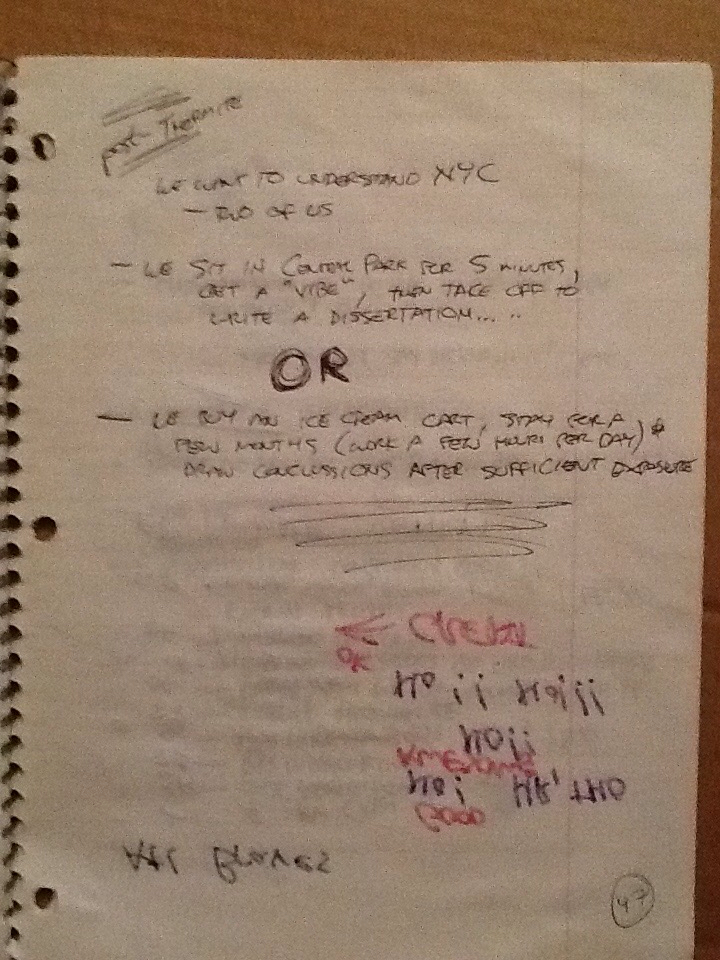 POST- THERMITE
WE WANT TO UNDERSTAND NYC
- TWO OF US
- WE SIT IN PARK FOR 5 MINUTES,
GET A "VIBE", THEN TAKE OFF TO
WRITE A DISSERTATION.....
OR
- WE BUY AN ICE CREAM CART, STAY FOR A
FEW MONTHS (WORK A FEW HOURS PER DAY) &
DRAW CONCLUSSIONS AFTER SUFFICIENT EXPOSURE
OK
HO!! HO!!!
HO!!
HO!
GOOD
47